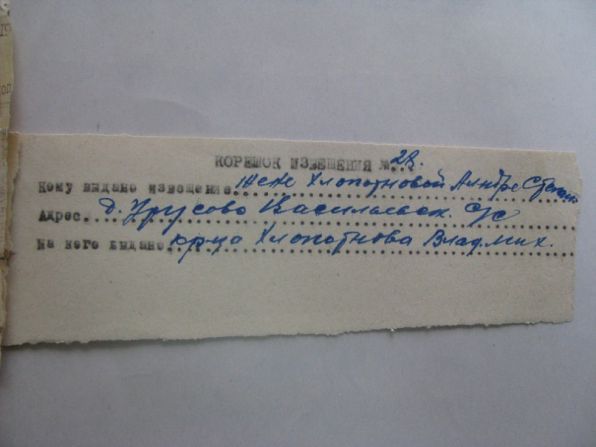 КОРЕШОК ИЗВЕЩЕНИЯ № 28.
Кому выдано извещение жене Хлопотновой
Адрес. д. Урусово Василаевск. С/С
На кого выдано кр-ца Хлопотнова Влад. Мих.